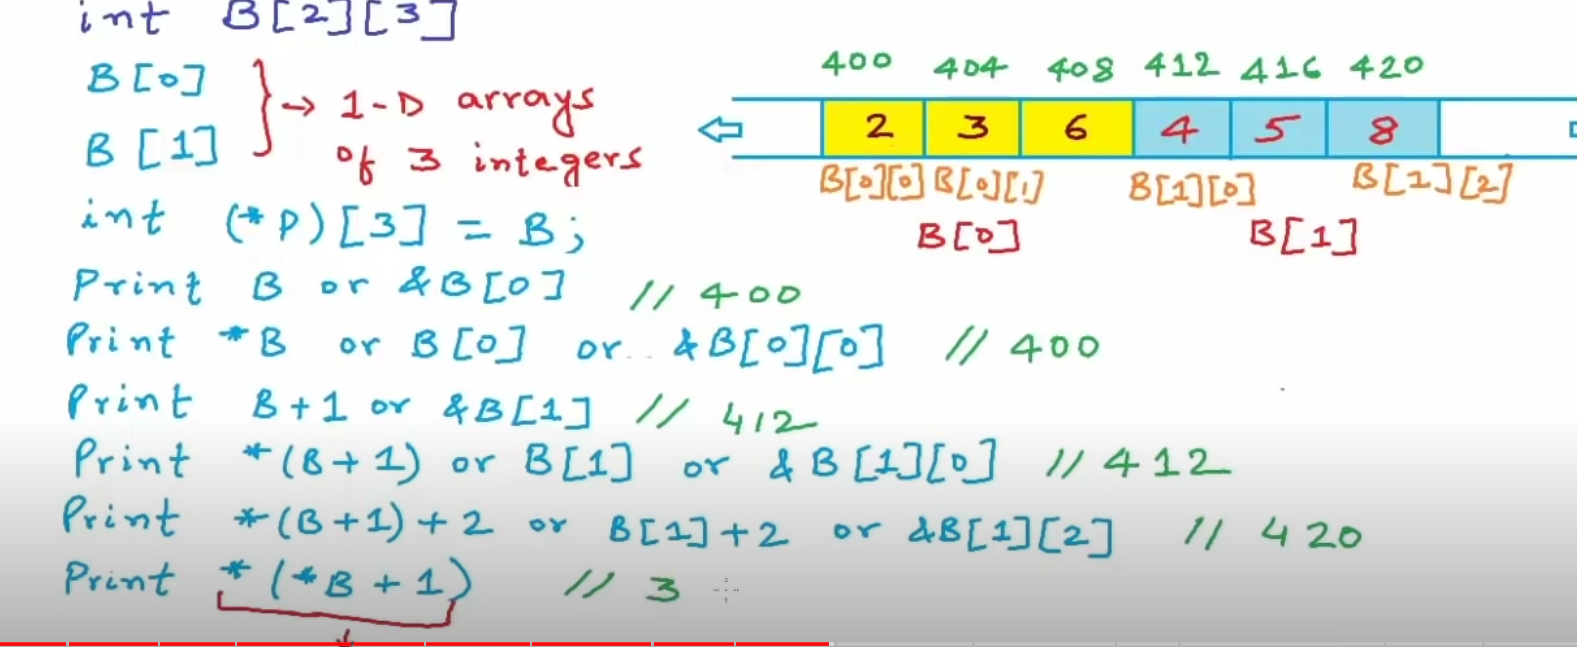 int B[2][3]
B[0]
B[1]
} → 1-D arrays
of 3 integers
int (*P)[3] = B;
Print B or &B[0] // 400
Print *B or B[0] or &B[0][0] // 400
Print B+1 or &B[1] // 412
Print *(B+1) or B[1] or &B[1][0] // 412
Print *(B+1)+2 or B[1]+2 or &B[1][2] // 420
Print *(*B+1) // 3
400 404 408 412 416 420
2 3 6 4 5 8
B[0][0] B[0][1] B[1][0] B[1][2]
B[0] B[1]